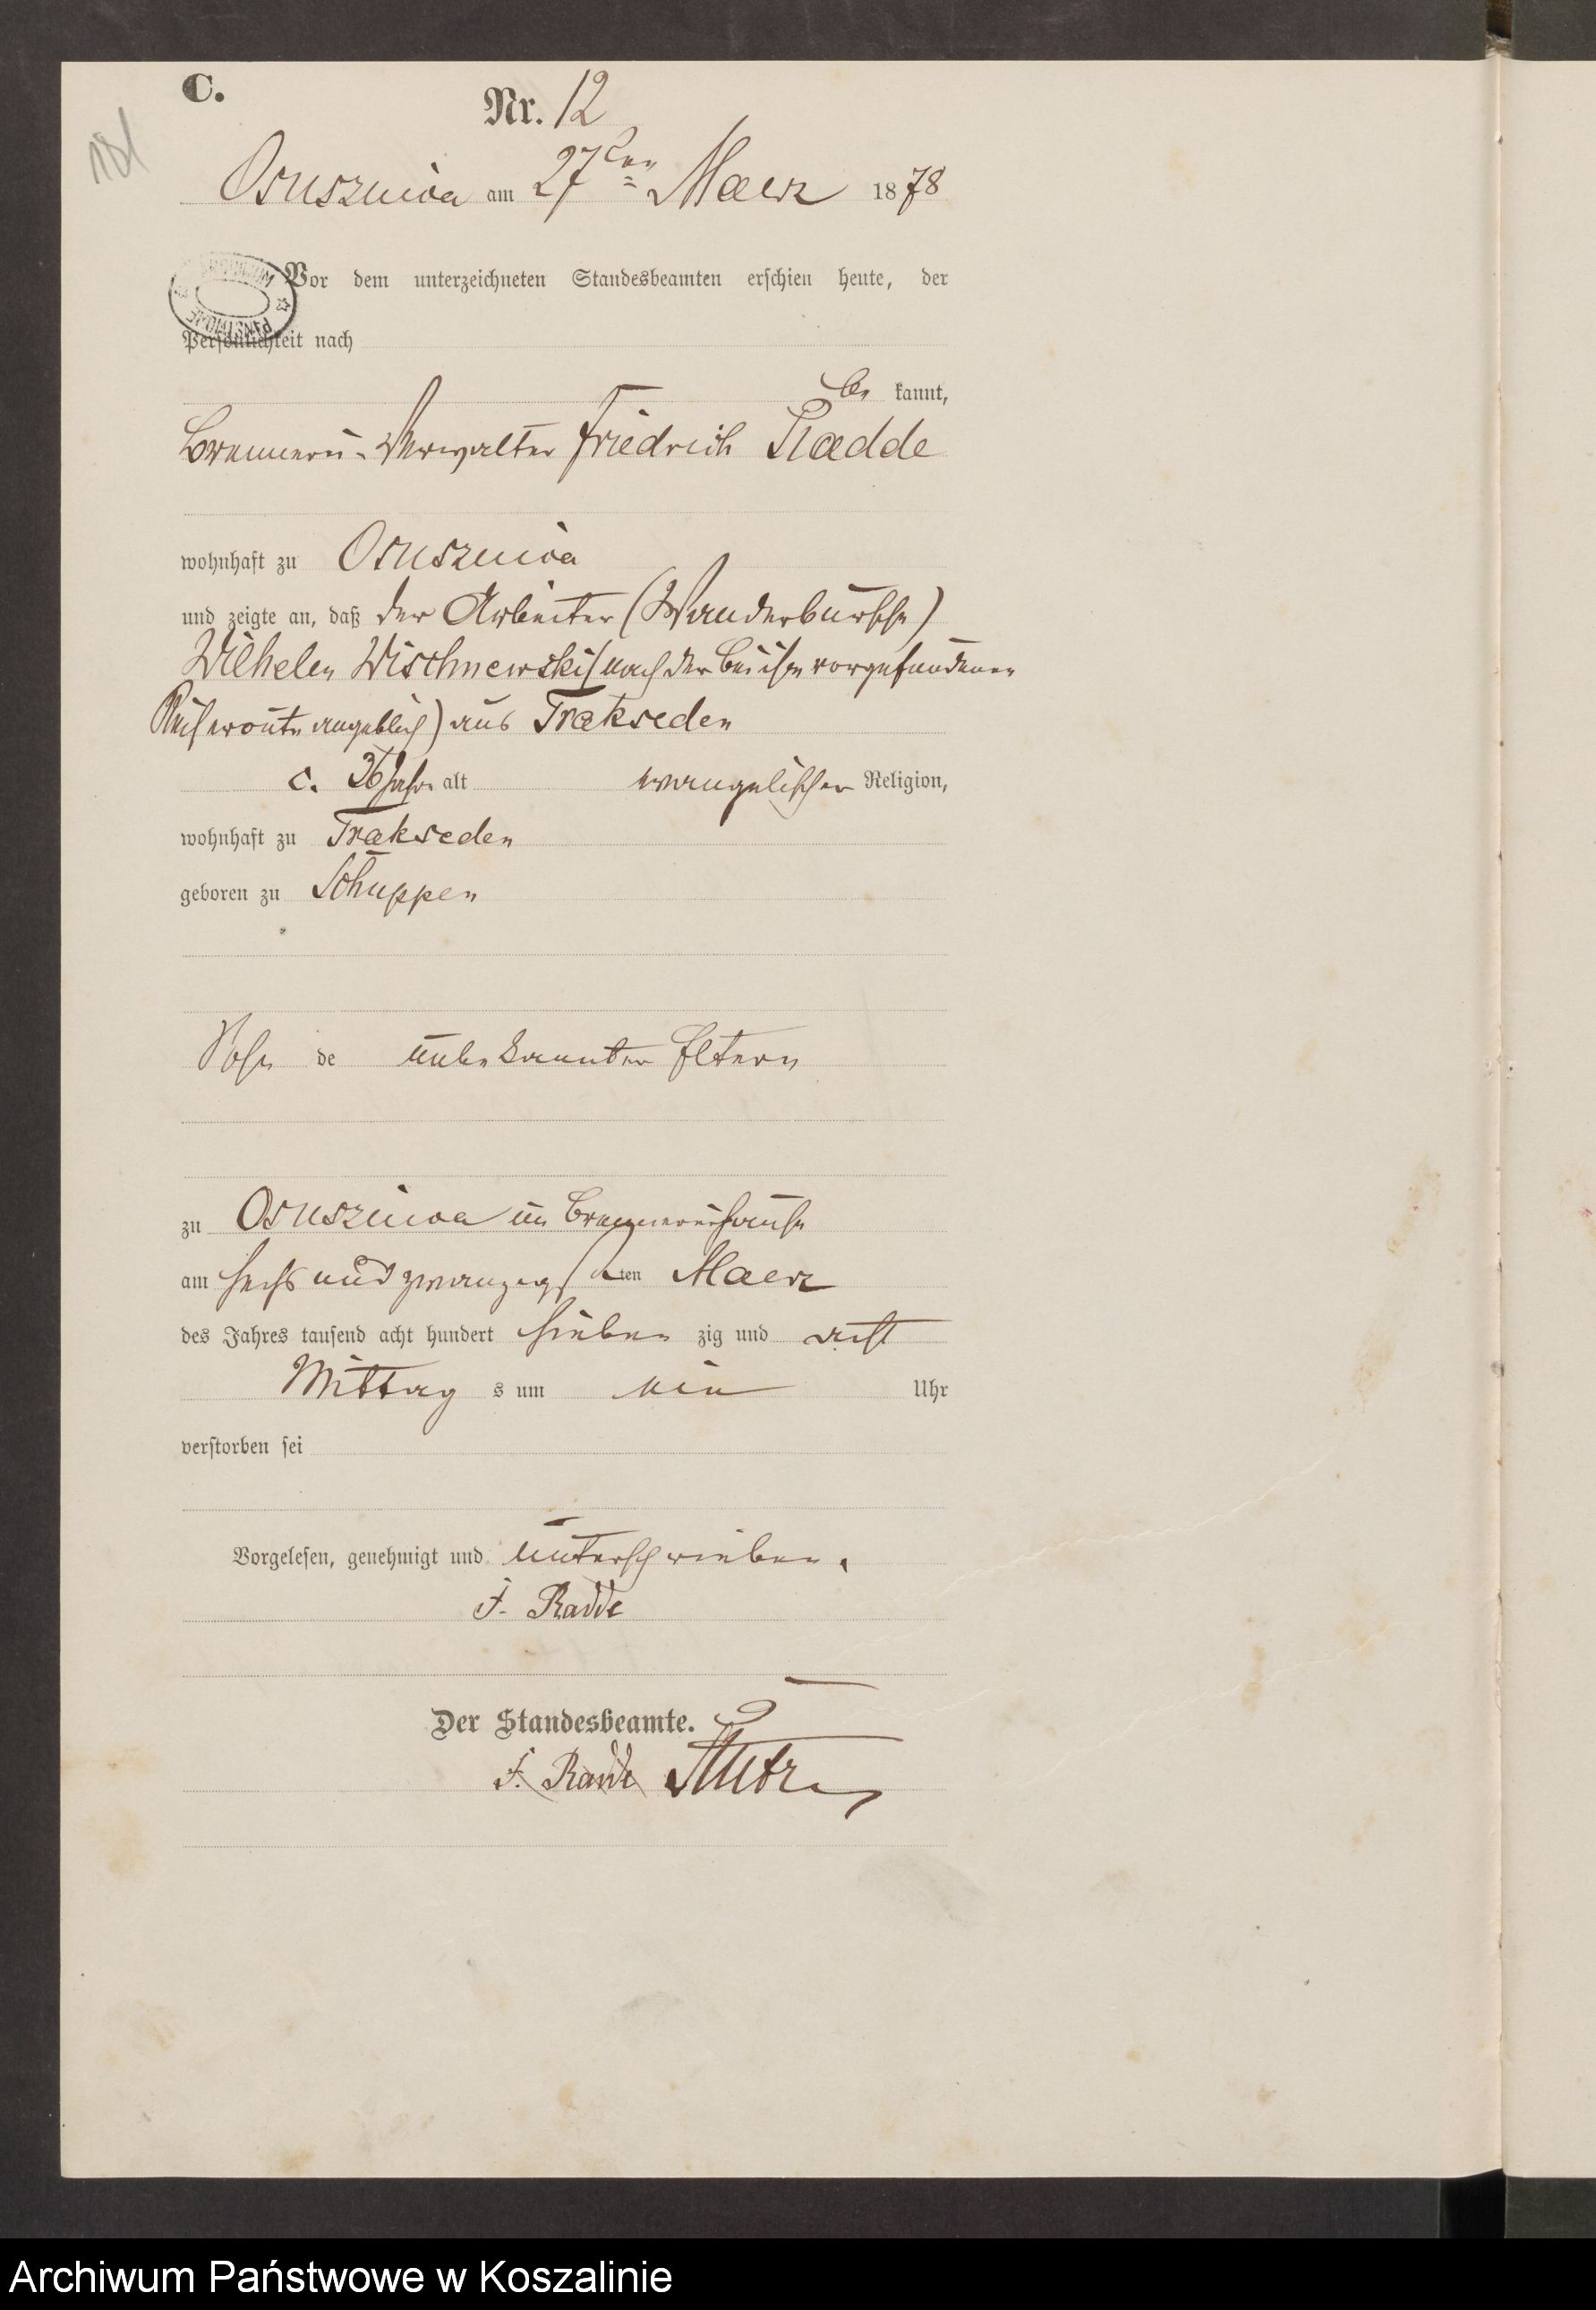 C.
Nr. 12
181
Osusznica am 27ten Maerz 1878
Vor dem unterzeichneten Standesbeamten erschien heute, der
Persönlichkeit nach
be kannt,
Brennerei-Verwalter Friedrich Radde
wohnhaft zu Osusznica
und zeigte an, daß der Arbeiter (Wanderbursche)
Wilhelm Wischnewski (nach der bei ihm vorgefundenen
Reiseroute angeblich) aus Trakseden
c. 36 Jahr alt evangelischer Religion,
wohnhaft zu Trakseden
geboren zu Schuppen
Sohn de unbekannter Eltern
zu Osusznica im Brennereihause
am sechs und zwanzigsten Maerz
des Jahres tausend acht hundert sieben zig und acht
Mittag s um ein Uhr
verstorben sei
Vorgelesen, genehmigt und unterschrieben.
F. Radde
Der Standesbeamte.
F. Radde
Archiwum Państwowe w Koszalinie